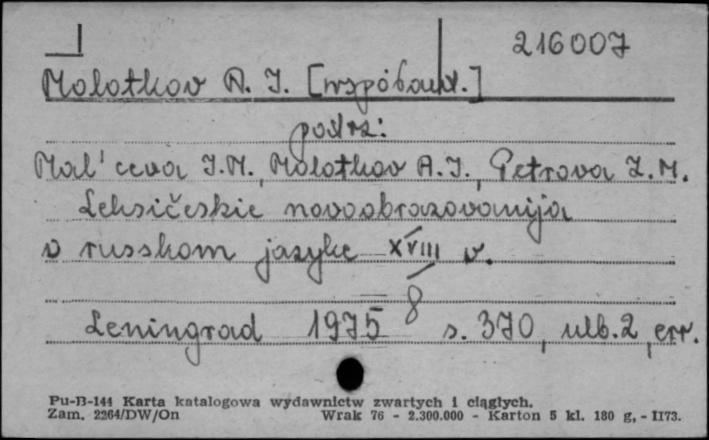 216007
Molotkov A. I. [współaut.]
podrz:
Mal'ceva I.M., Molotkov A.I., Petrova Z.M.
Leksičeskie novoobrazovanija
v russkom jazyke XVIII v.
8
Leningrad 1975 s. 370, ulb. 2, err.
Pu-B-144 Karta katalogowa wydawnictw zwartych i ciągłych.
Zam. 2264/DW/On Wrak 76 - 2.300.000 - Karton 5 kl. 180 g, - II73.